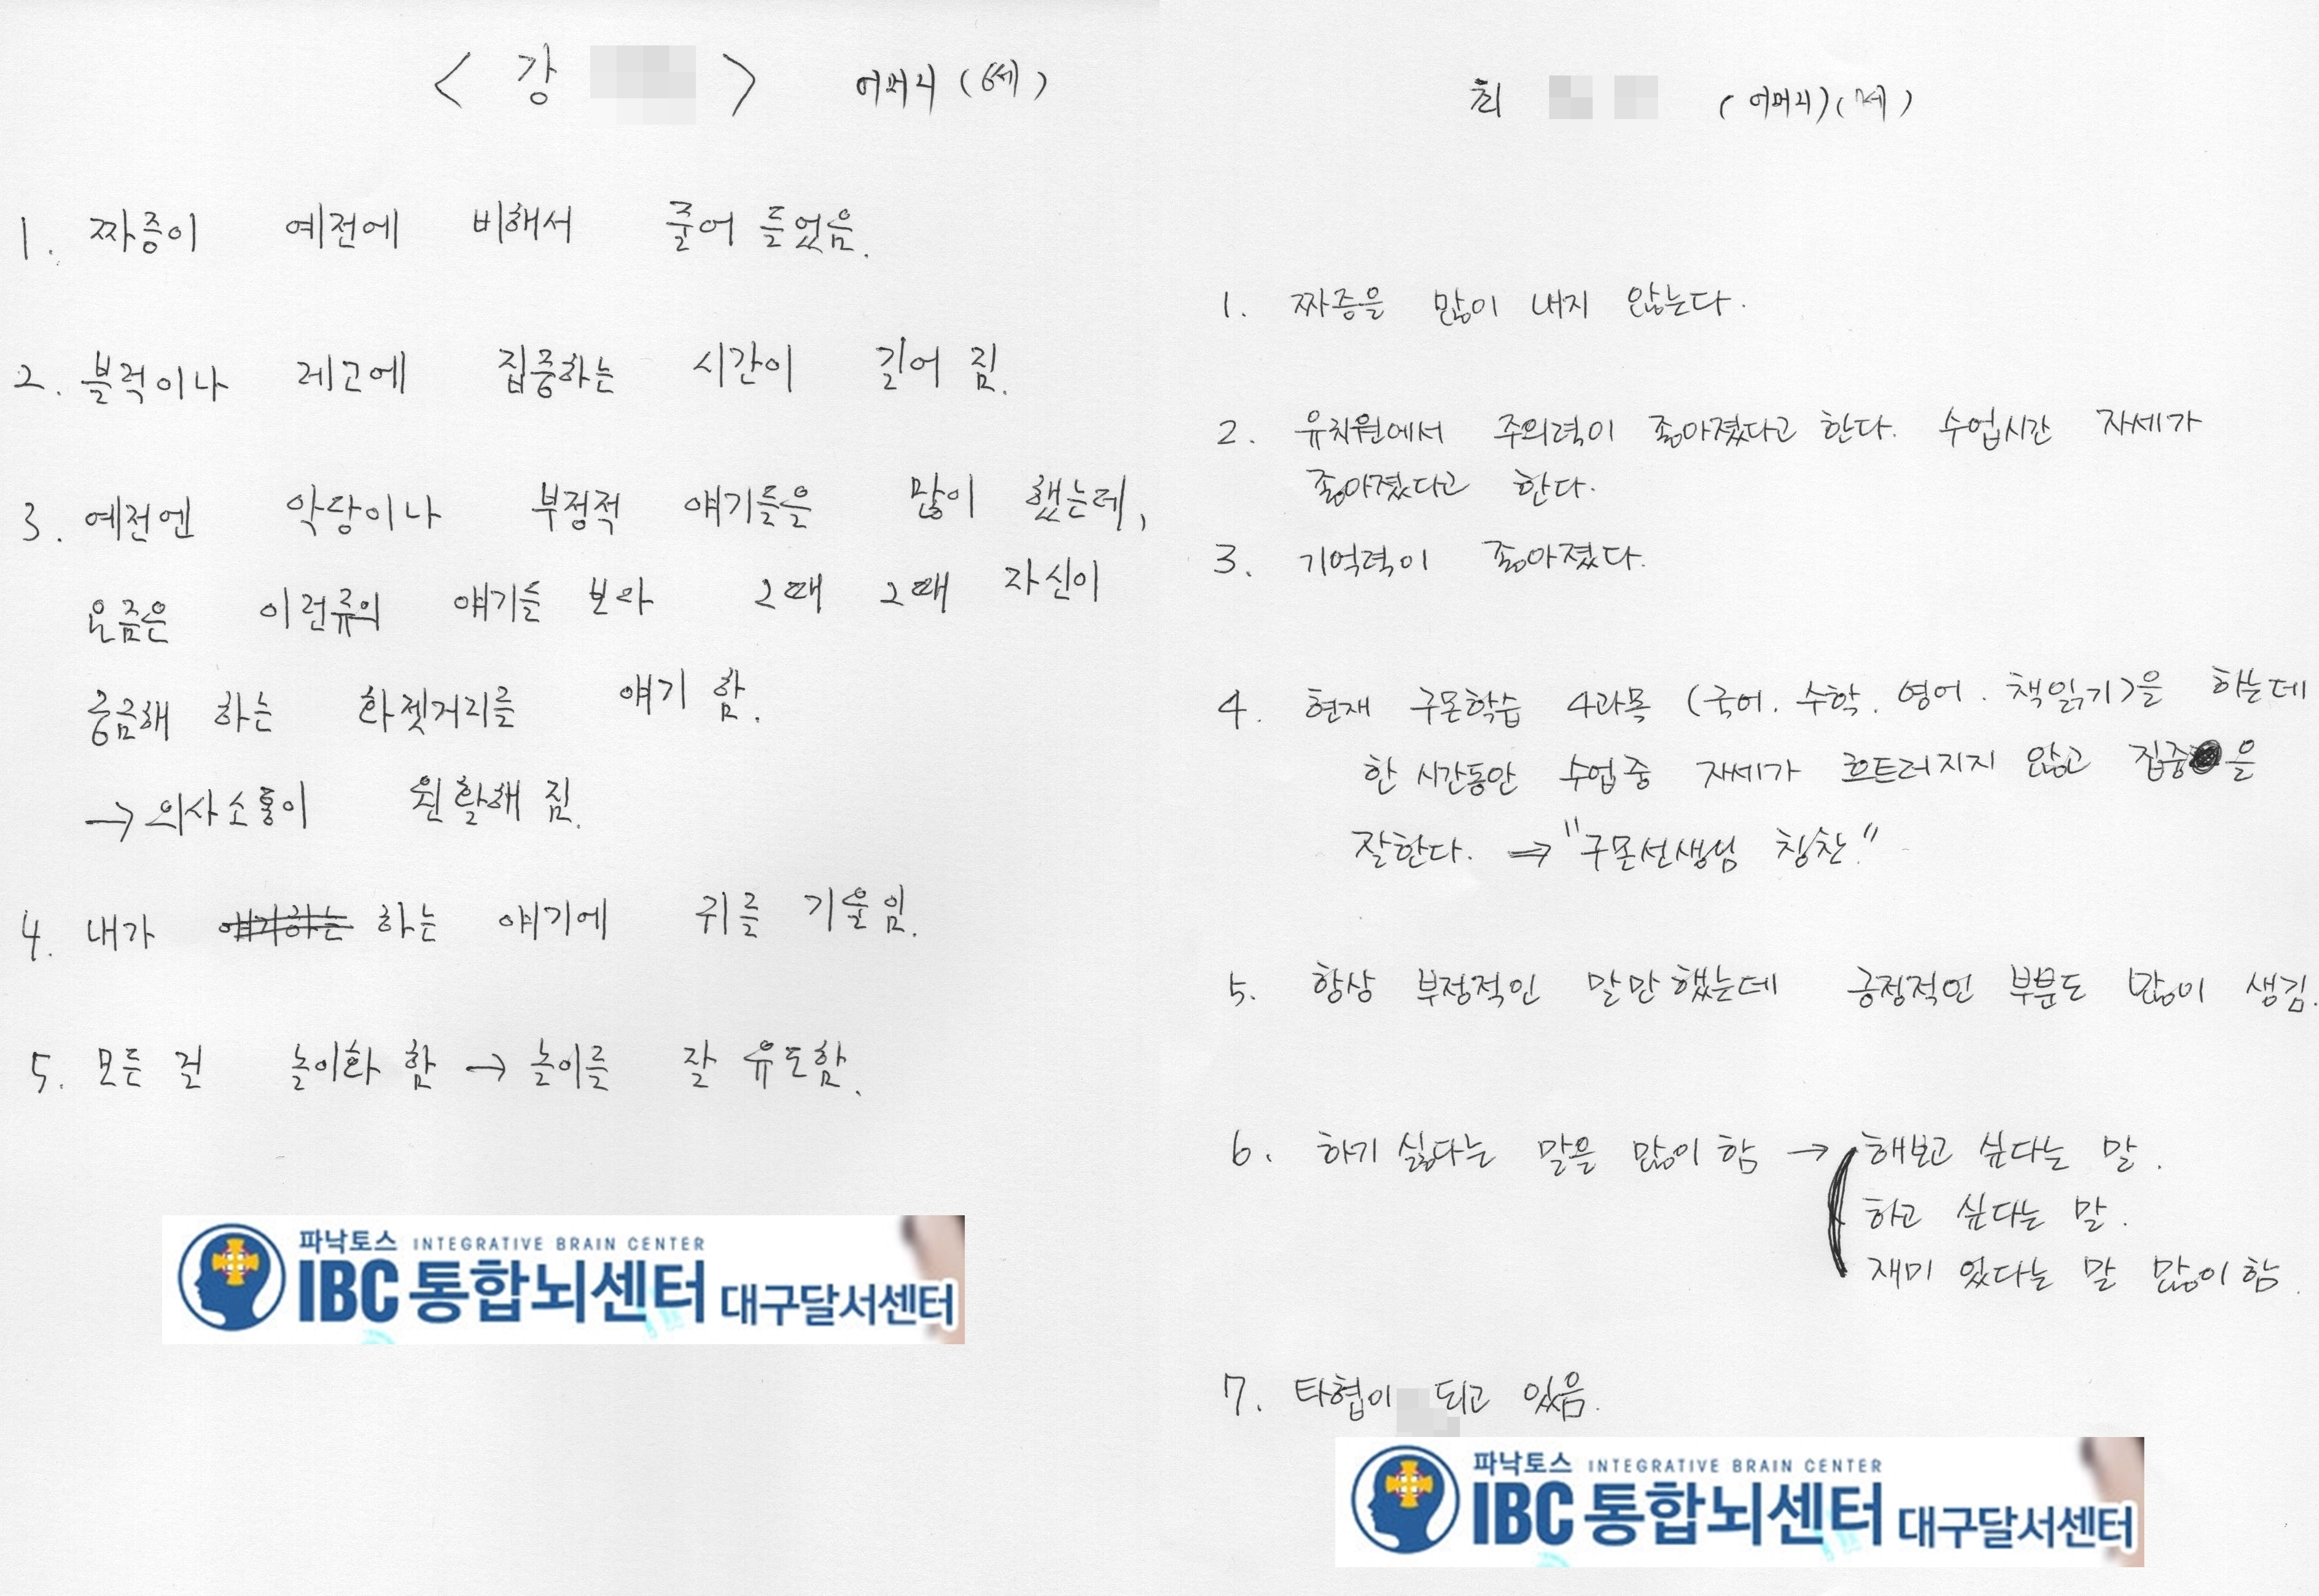 < 강 > 어머니 (6세)
1. 짜증이 예전에 비해서 줄어 들었음.
2. 블럭이나 레고에 집중하는 시간이 길어 짐.
3. 예전엔 악당이나 부정적 얘기들을 많이 했는데,
요즘은 이런류의 얘기들 보다 그때 그때 자신이
궁금해 하는 화젯거리를 얘기 함.
→ 의사소통이 원활해 짐.
4. 내가 얘기하는 하는 얘기에 귀를 기울임.
5. 모든 걸 놀이화 함 → 놀이를 잘 유도함.
파낙토스 INTEGRATIVE BRAIN CENTER
IBC 통합뇌센터 대구달서센터
최 (어머니) (7세)
1. 짜증을 많이 내지 않는다.
2. 유치원에서 주의력이 좋아졌다고 한다. 수업시간 자세가
좋아졌다고 한다.
3. 기억력이 좋아졌다.
4. 현재 구몬학습 4과목 (국어. 수학. 영어. 책읽기)을 하는데
한 시간동안 수업중 자세가 흐트러지지 않고 집중을
잘한다. ⇒ "구몬선생님 칭찬."
5. 항상 부정적인 말만 했는데 긍정적인 부분도 많이 생김.
6. 하기 싫다는 말을 많이 함 → 해보고 싶다는 말.
하고 싶다는 말.
재미 있다는 말 많이 함.
7. 타협이 되고 있음.
파낙토스 INTEGRATIVE BRAIN CENTER
IBC 통합뇌센터 대구달서센터